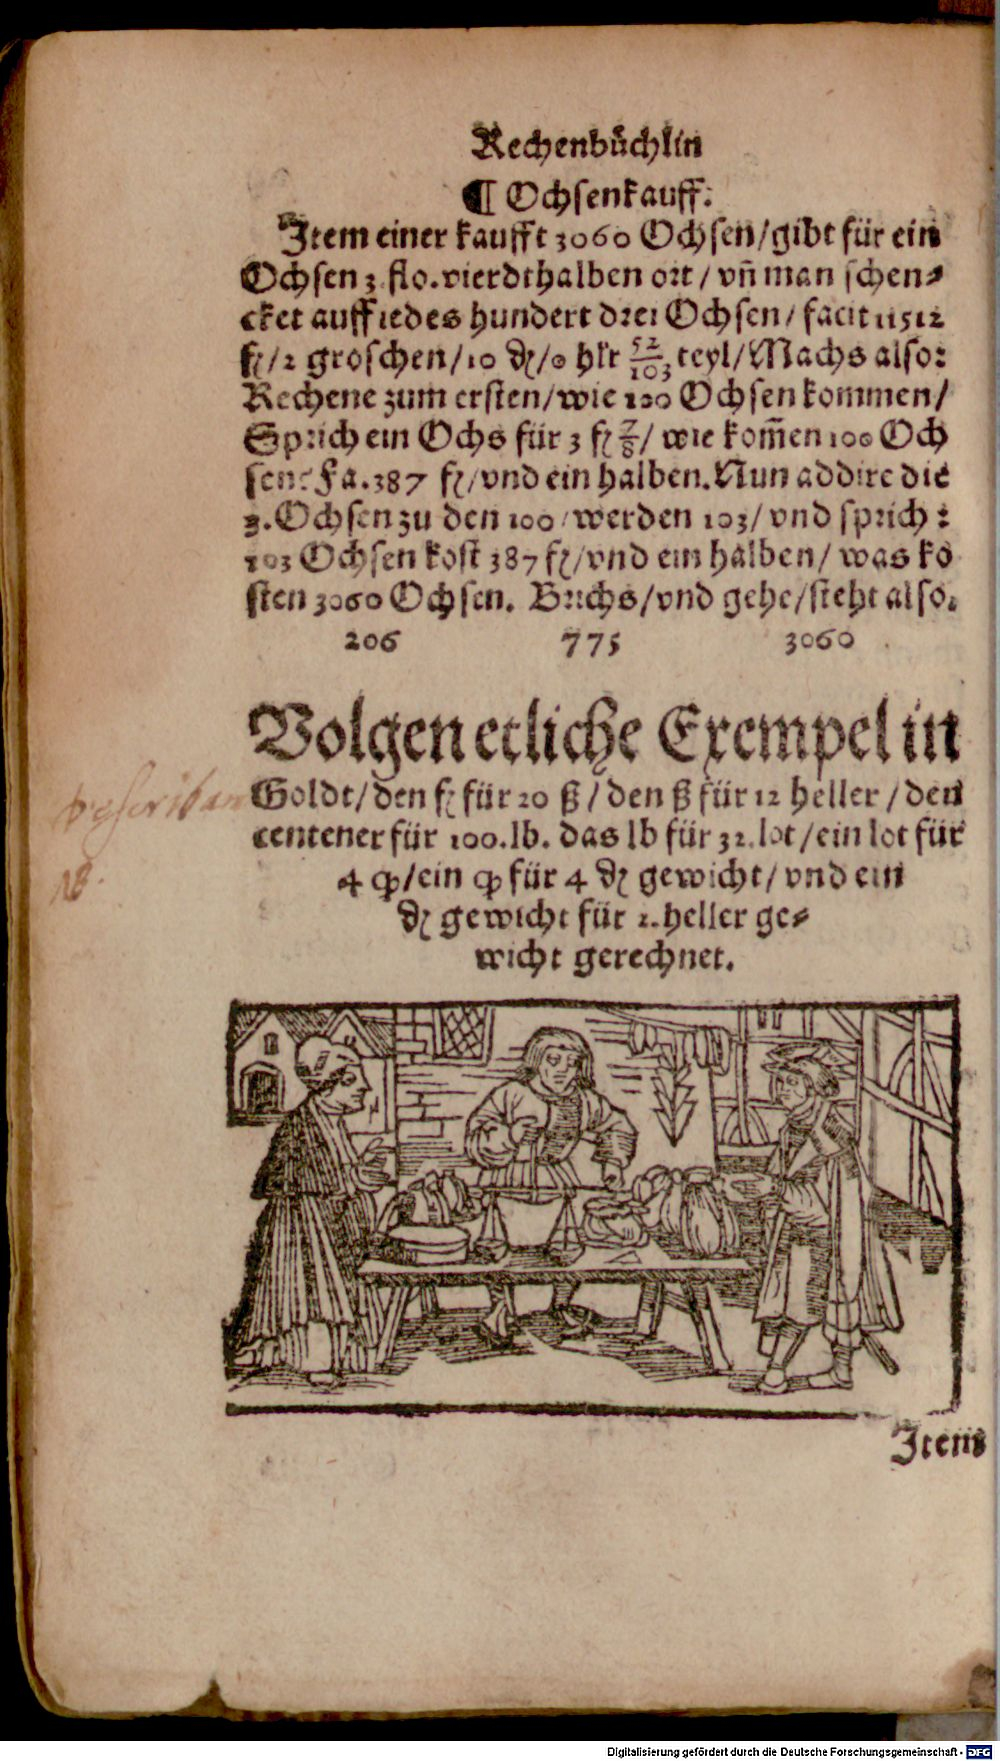 Rechenbüchlin
¶ Ochsenkauff.
Item einer kaufft 3060 Ochsen/gibt für ein
Ochsen 3 flo. vierdthalben ort/ vñ man schen⸗
cket auff iedes hundert drei Ochsen/ facit 11512
fl/2 groschen/10 ₰/0 hlr 52/103 teyl/Machs also:
Rechene zum ersten/wie 100 Ochsen kommen/
Sprich ein Ochs für 3 fl 7/8/ wie kom̃en 100 Och
sen? Fa. 387 fl/vnd ein halben. Nun addire die
3. Ochsen zu den 100/werden 103/ vnd sprich:
103 Ochsen kost 387 fl/vnd ein halben/ was ko
sten 3060 Ochsen. Brichs/vnd gehe/steht also.
206 775 3060
Volgen etliche Exempel in
Goldt/den fl für 20 ß/den ß für 12 heller/den
centener für 100. lb. das lb für 32. lot/ein lot für
4 qr/ein qr für 4 ₰ gewicht/ vnd ein
₰ gewicht für 2. heller ge⸗
wicht gerechnet.
18.
Item
Digitalisierung gefördert durch die Deutsche Forschungsgemeinschaft - DFG